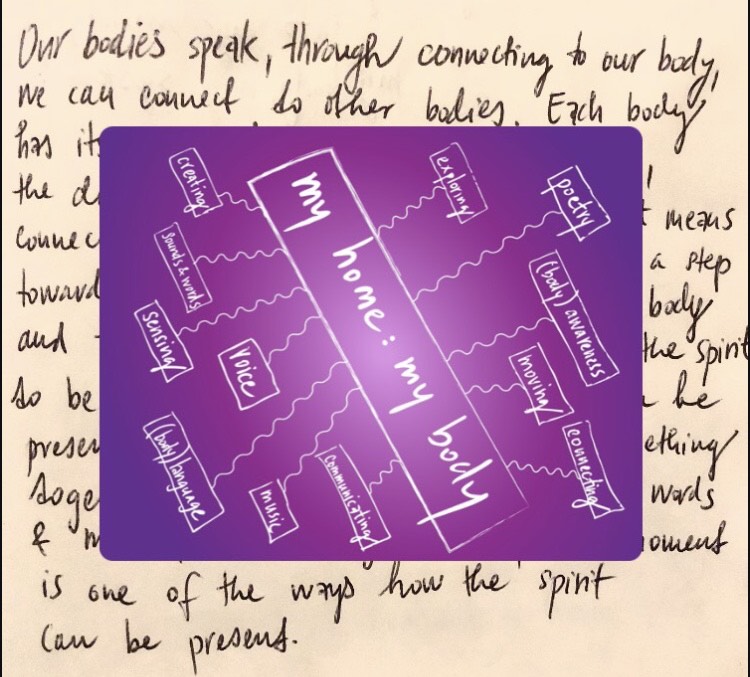 Our bodies speak, through connecting to our body,
we can connect to other bodies. Each body
has its
the
connec
means
toward
a step
body
and
the spirit
to be
be
presen
ething
toge
words
& m
oment
is one of the ways how the spirit
can be present.
my home: my body
creating
sounds & words
sensing
voice
(body) language
music
communicating
exploring
poetry
(body) awareness
moving
connecting